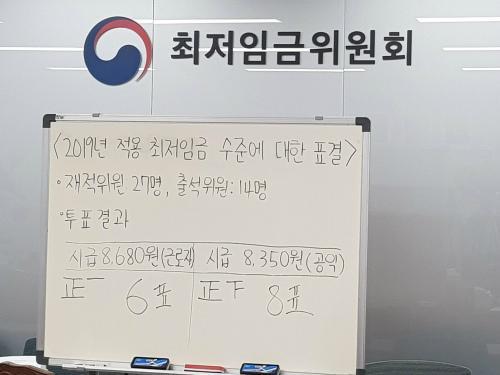 최저임금위원회
<2019년 적용 최저임금 수준에 대한 표결>
· 재적위원 27명, 출석위원: 14명
· 투표결과
시급 8,680원(근로자) 시급 8,350원(공익)
正一 6표 正下 8표